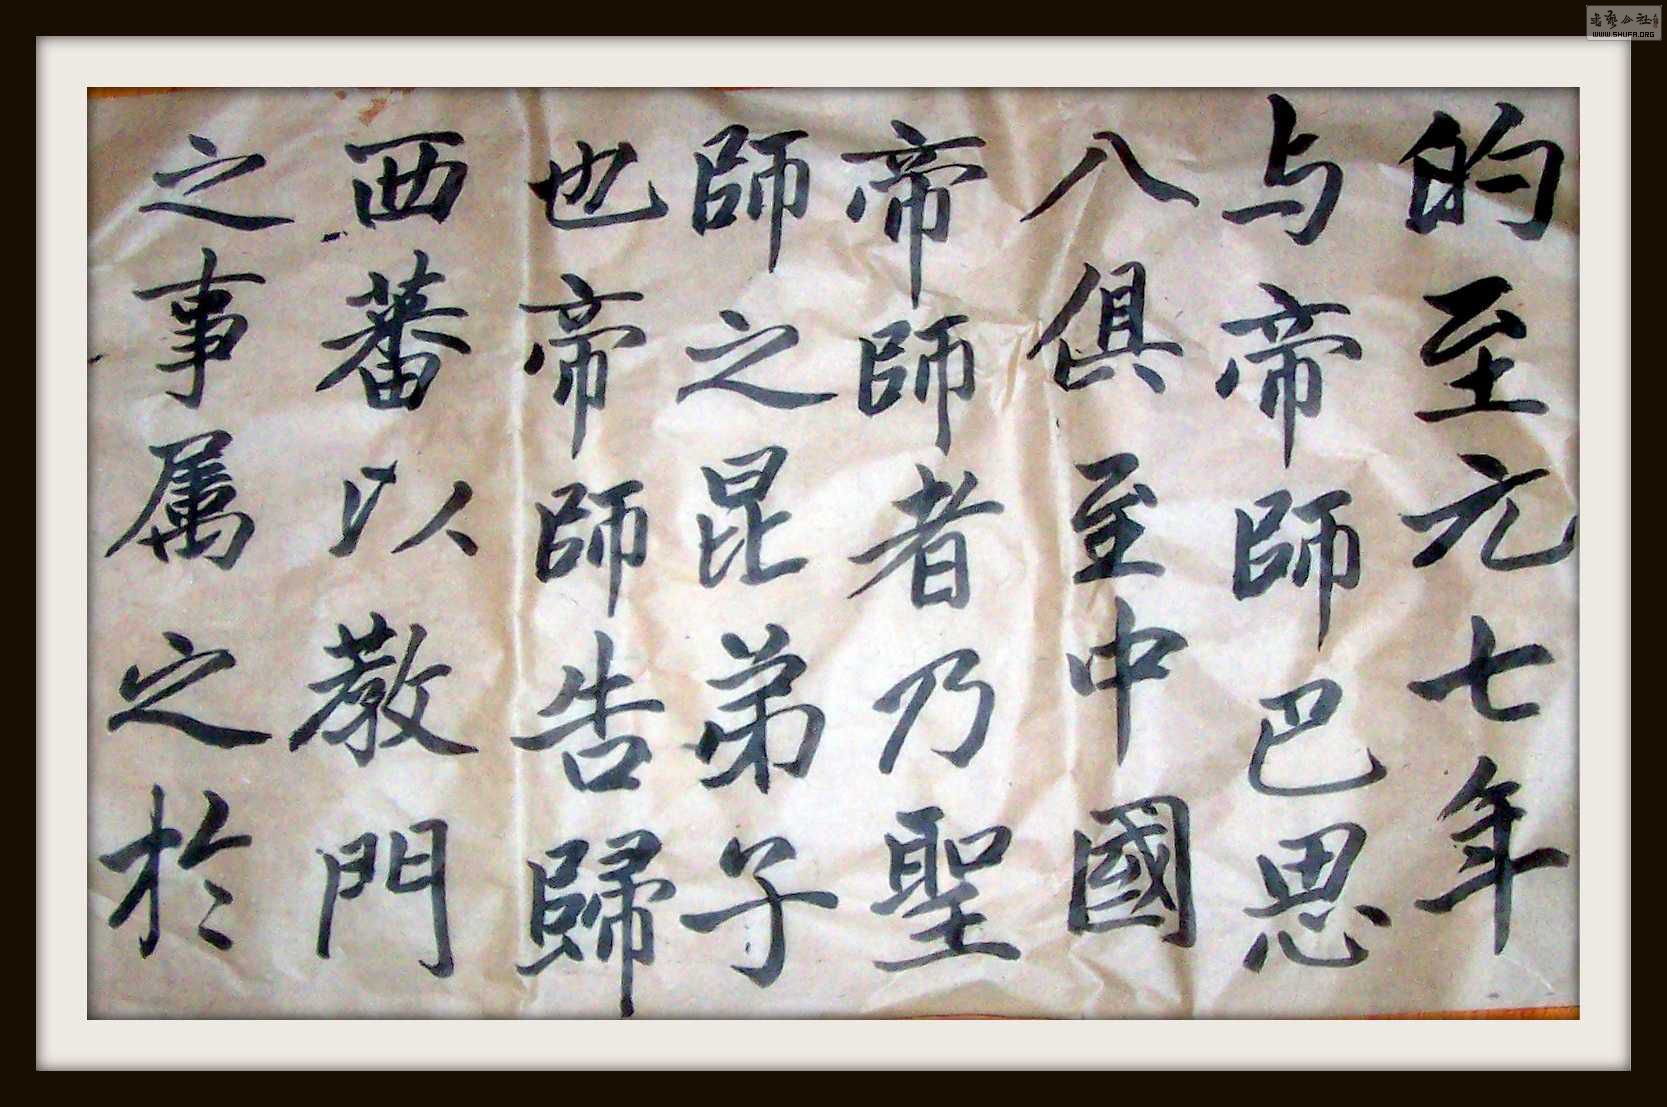 的至元七年
与帝師巴思
八俱至中國
帝師者乃聖
師之昆弟子
也帝師告歸
西蕃以教門
之事属之於
WWW.SHUFA.ORG